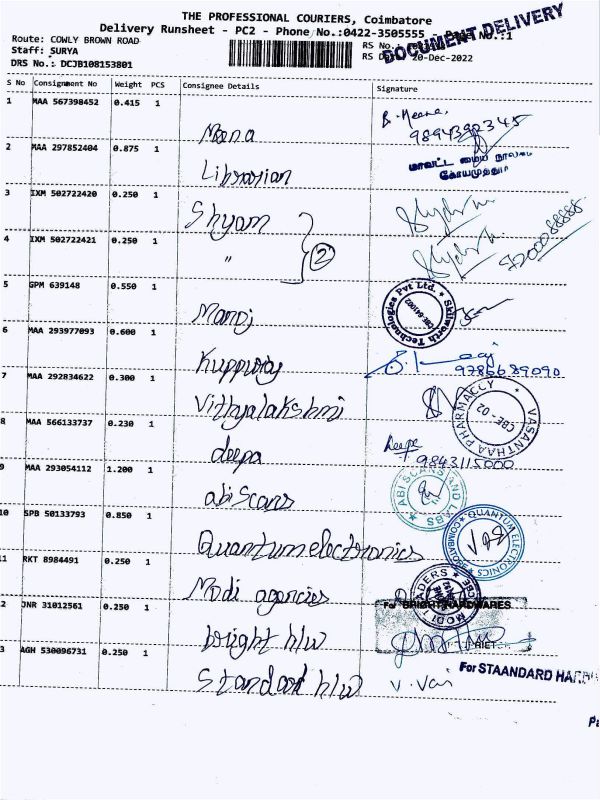 THE PROFESSIONAL COURIERS, Coimbatore
Delivery Runsheet - PC2 - Phone No.:0422-3505555 No.:1
DOCUMENT DELIVERY
Route: COWLY BROWN ROAD RS No.
Staff: SURYA RS Date 20-Dec-2022
DRS No.: DCJB108153801
S No Consignment No Weight PCS Consignee Details Signature
1 MAA 567398452 0.415 1 Meena B. Meena
9894392345
2 MAA 297852404 0.875 1 Librarian மாவட்ட மைய நூலகம்
கோயமுத்தூர்
3 IXM 502722420 0.250 1 Shyam
4 IXM 502722421 0.250 1 " 2
5 GPM 639148 0.550 1 Manoj
Skilworth Technologies Pvt Ltd. * CBE-641002
6 MAA 293977093 0.600 1 Kuppuraj
9786689090
7 MAA 292834622 0.300 1 Vithyalakshmi
VASANTHAA PHARMACCY * CBE - 02
8 MAA 566133737 0.230 1 deepa Deepa
9843115000
9 MAA 293054112 1.200 1 abi Scans
ABI SCANS AND LABS
10 SPB 50133793 0.850 1 Quantum electronics
QUANTUM ELECTRONICS * COIMBATORE
11 RKT 8984491 0.250 1 Modi agencies
MODI TRADERS * CBE
2 JNR 31012561 0.250 1 bright h/w
For BRIGHT HARDWARES
3 AGH 530096731 0.250 1 Standard h/w V. Van
For STAANDARD HAR